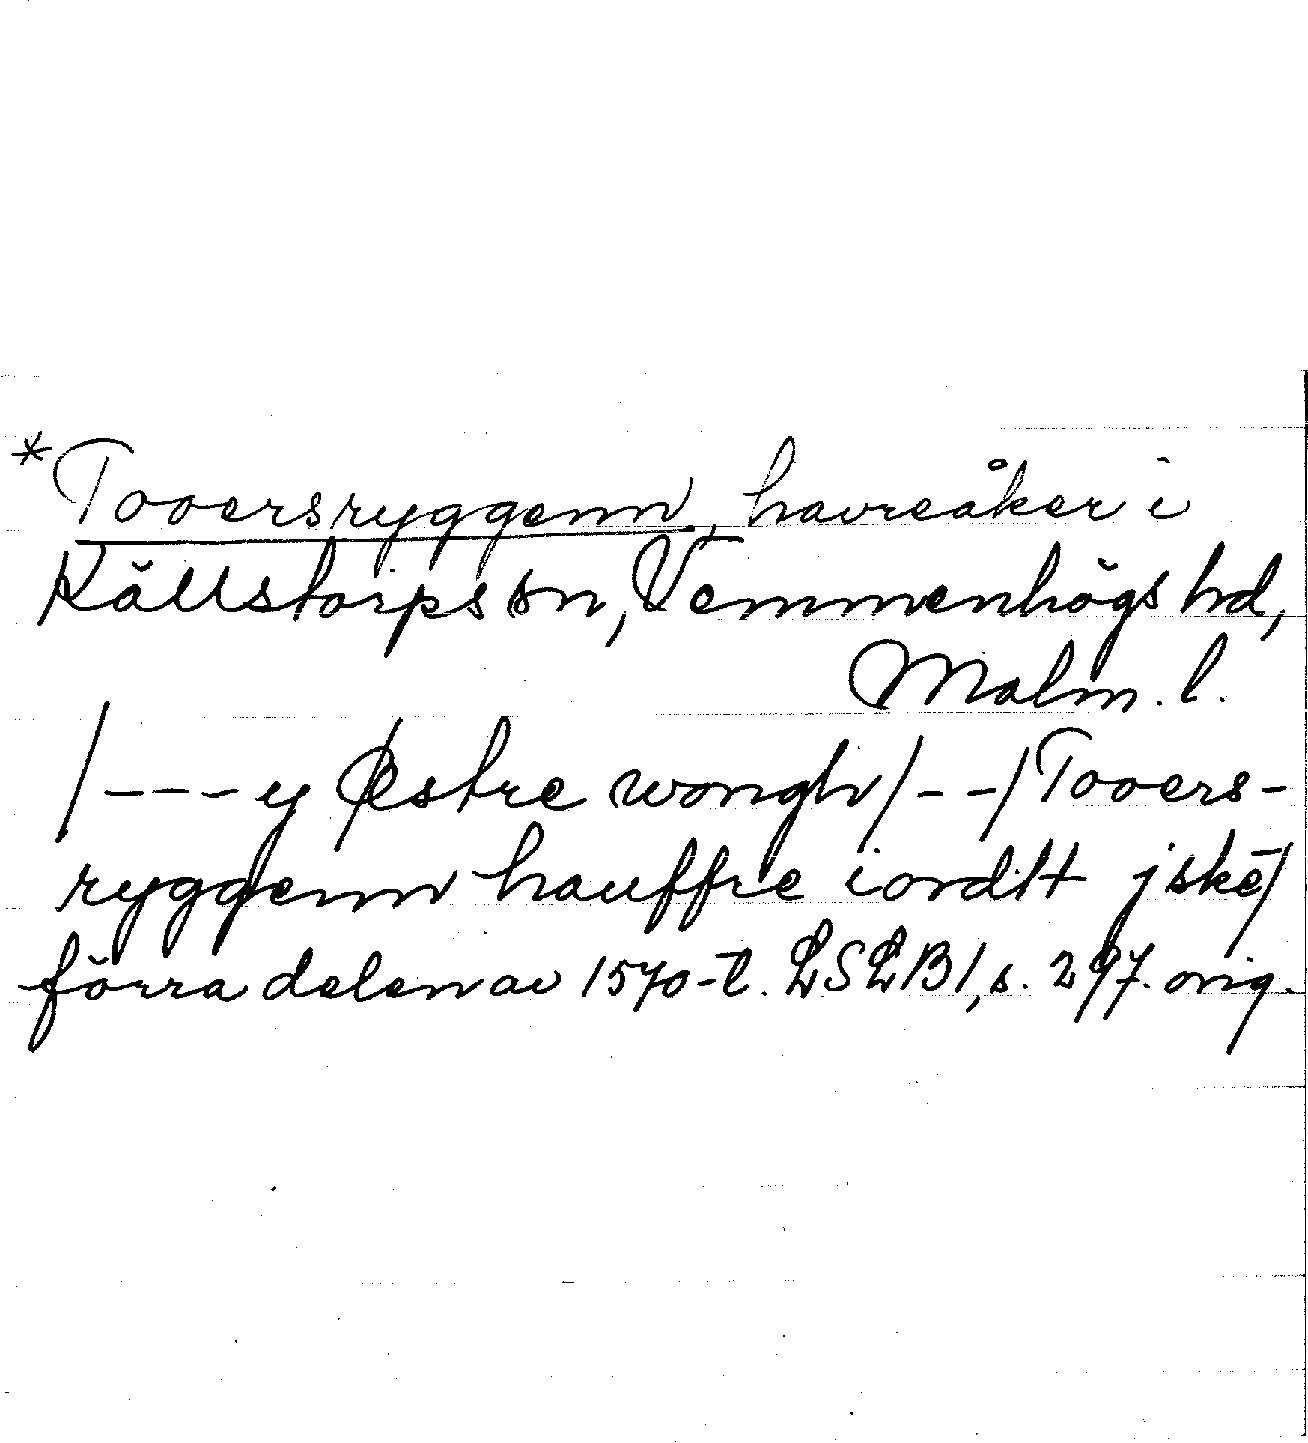 *Tooersryggenn, havreåker i
Källstorps sn, Vemmenhögs hd,
Malm. l.
/---y Østre wongh/--/Tooers-
ryggenn hauffre iordtt j skē/
förra delen av 1570-t. LSLB1, s. 297. orig.